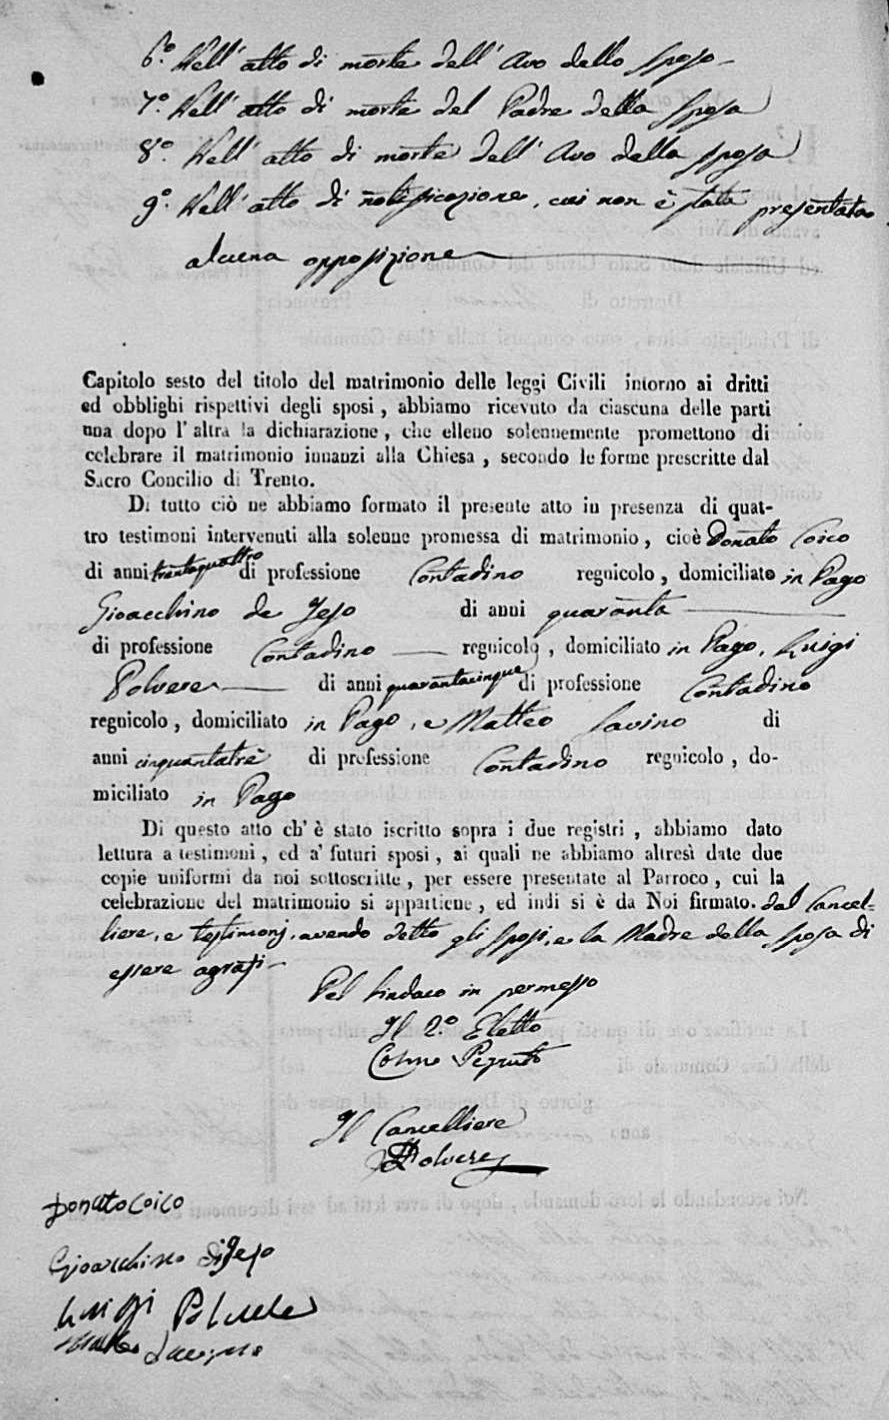 6.° Nell' atto di morte dell' Avo dello sposo
7.° Nell' atto di morte del Padre della sposa
8.° Nell' atto di morte dell' Avo della sposa
9.° Nell' atto di notificazione, cui non è stata presentata
alcuna opposizione
Capitolo sesto del titolo del matrimonio delle leggi Civili intorno ai dritti
ed obblighi rispettivi degli sposi, abbiamo ricevuto da ciascuna delle parti
una dopo l'altra la dichiarazione, che elleno solennemente promettono di
celebrare il matrimonio innanzi alla Chiesa, secondo le forme prescritte dal
Sacro Concilio di Trento.
Di tutto ciò ne abbiamo formato il presente atto in presenza di quat-
tro testimoni intervenuti alla solenne promessa di matrimonio, cioè Donato Coico
di anni trentaquattro di professione Contadino regnicolo, domiciliato in Pago
Gioacchino de Jeso di anni quaranta
di professione Contadino regnicolo, domiciliato in Pago, Luigi
Polvere di anni quarantacinque di professione Contadino
regnicolo, domiciliato in Pago, e Matteo Savino di
anni cinquantatrè di professione Contadino regnicolo, do-
miciliato in Pago
Di questo atto ch'è stato iscritto sopra i due registri, abbiamo dato
lettura a testimoni, ed a' futuri sposi, ai quali ne abbiamo altresì date due
copie uniformi da noi sottoscritte, per essere presentate al Parroco, cui la
celebrazione del matrimonio si appartiene, ed indi si è da Noi firmato. dal Cancel=
liere, e testimonj, avendo detto gli sposi, e la Madre della sposa di
essere agrafi
Pel Sindaco in permesso
Il 2.° Eletto
Cosmo
Il Cancelliere
Polvere
Donato Coico
Gioacchino di Jeso
Luiggi Polvere